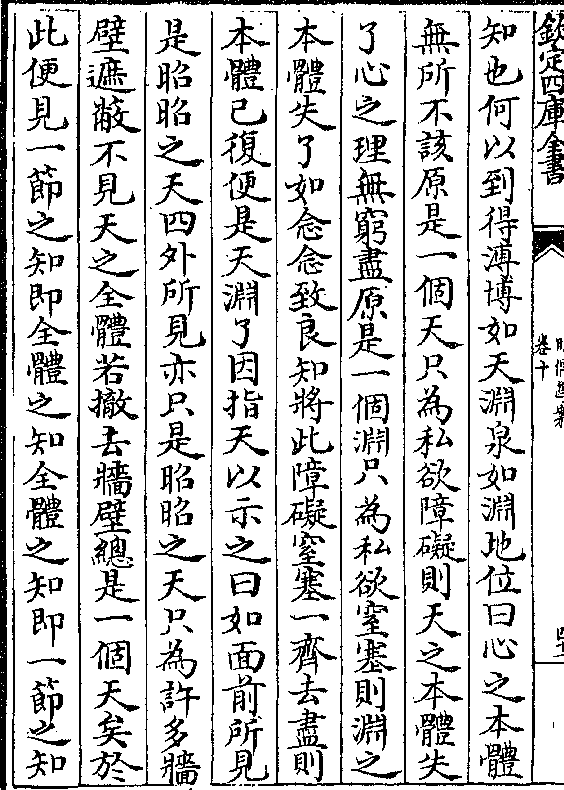 欽定四庫全書
卷十
知也何以到得溥博如天淵泉如淵地位曰心之本體
無所不該原是一個天只為私欲障礙則天之本體失
了心之理無窮盡原是一個淵只為私欲窒塞則淵之
本體失了如念念致良知將此障礙窒塞一齊去盡則
本體已復便是天淵了因指天以示之曰如面前所見
是昭昭之天四外所見亦只是昭昭之天只為許多牆
壁遮蔽不見天之全體若撤去牆壁總是一個天矣於
此便見一節之知即全體之知全體之知即一節之知